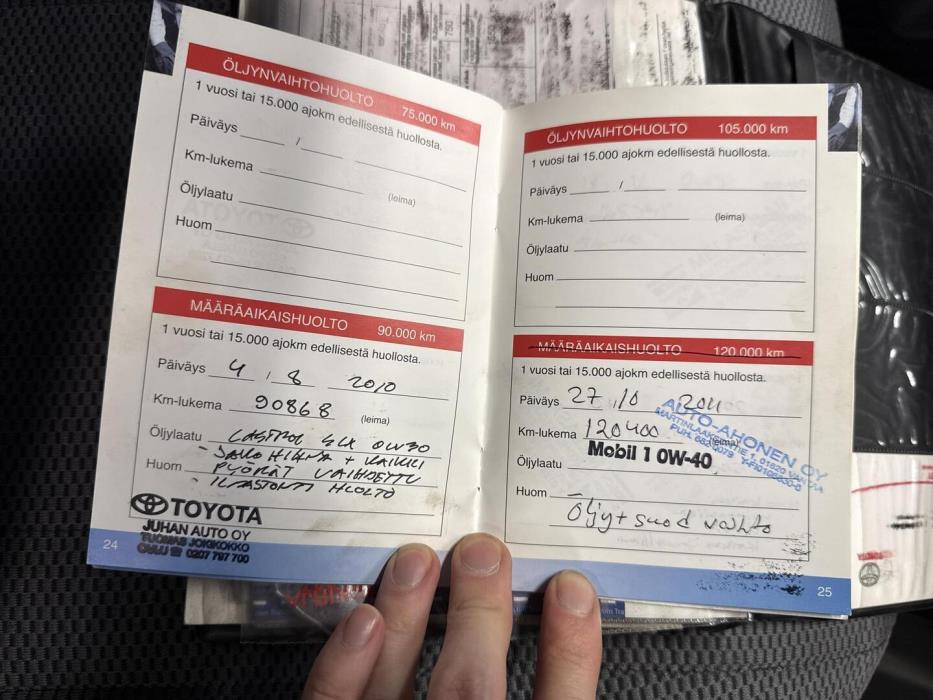 ÖLJYNVAIHTOHUOLTO 75.000 km
1 vuosi tai 15.000 ajokm edellisestä huollosta.
Päiväys /
Km-lukema
(leima)
Öljylaatu
Huom
MÄÄRÄAIKAISHUOLTO 90.000 km
1 vuosi tai 15.000 ajokm edellisestä huollosta.
Päiväys 4 / 8 2010
Km-lukema 90868
(leima)
Öljylaatu CASTROL SLX 0W30
- JAKOHIHNA + KAIKKI
Huom PYÖRÄT VAIHDETTU
- ILMASTOINTI HUOLTO
TOYOTA
JUHAN AUTO OY
TUOMAS JOKIKOKKO
OULU ☎ 0207 797 700
24
ÖLJYNVAIHTOHUOLTO 105.000 km
1 vuosi tai 15.000 ajokm edellisestä huollosta.
Päiväys /
Km-lukema (leima)
Öljylaatu
Huom
MÄÄRÄAIKAISHUOLTO 120.000 km
1 vuosi tai 15.000 ajokm edellisestä huollosta.
Päiväys 27 / 10 2011
AUTO-AHONEN OY
Km-lukema 120400 (leima)
01620 VANTAA
Mobil 1 0W-40
Öljylaatu
Huom
Öljy + suod vaihto
25